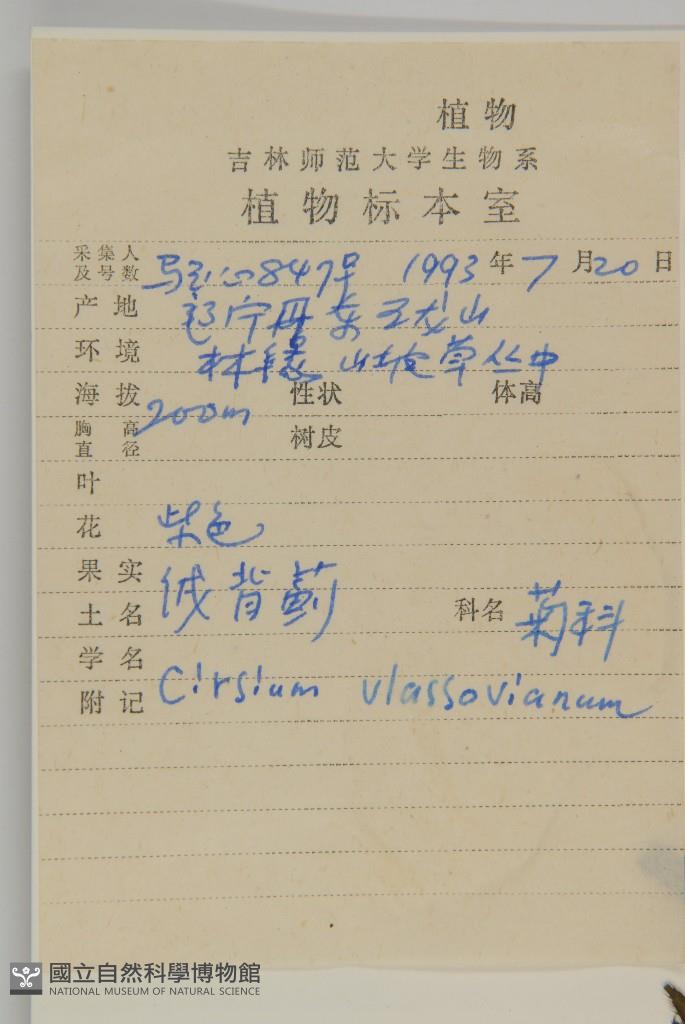 植物
吉林师范大学生物系
植物标本室
采集人及号数 马 心847号 1993年7月20日
产地 辽宁丹东五龙山
环境 林缘山坡草丛中
海拔 200m 性状 体高
胸高直径 树皮
叶
花 紫色
果实
土名 绒背蓟 科名 菊科
学名
附记 Cirsium vlassovianum
國立自然科學博物館
NATIONAL MUSEUM OF NATURAL SCIENCE